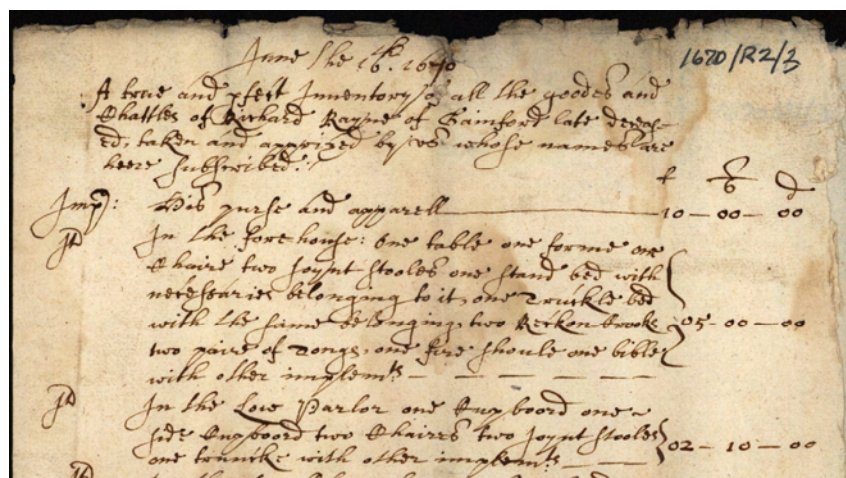 June the 16th. 1670
1670/R2/3
A true and pfect Inventory of all the goodes and
Chattles of Richard Rayne of Gainford late deceas-
ed, taken and apprized by us whose names are
heere subscribed:
£ s d
Imp: His purse and apparell 10 — 00 — 00
It In the forehouse: one table one forme one
Chaire two Joynt stooles one stand bed with
necessaries belonging to it, one Truckle bed
with the same belonging, two Reckon-crooks 05 - 00 — 00
two paire of Tongs, one fire shoule one bible
with other implemts — — — — —
It In the Low Parlor one Cupboord one ~
side Cupboord two Chaires two Joynt stooles 02 — 10 — 00
one truncke with other implemts — —
It